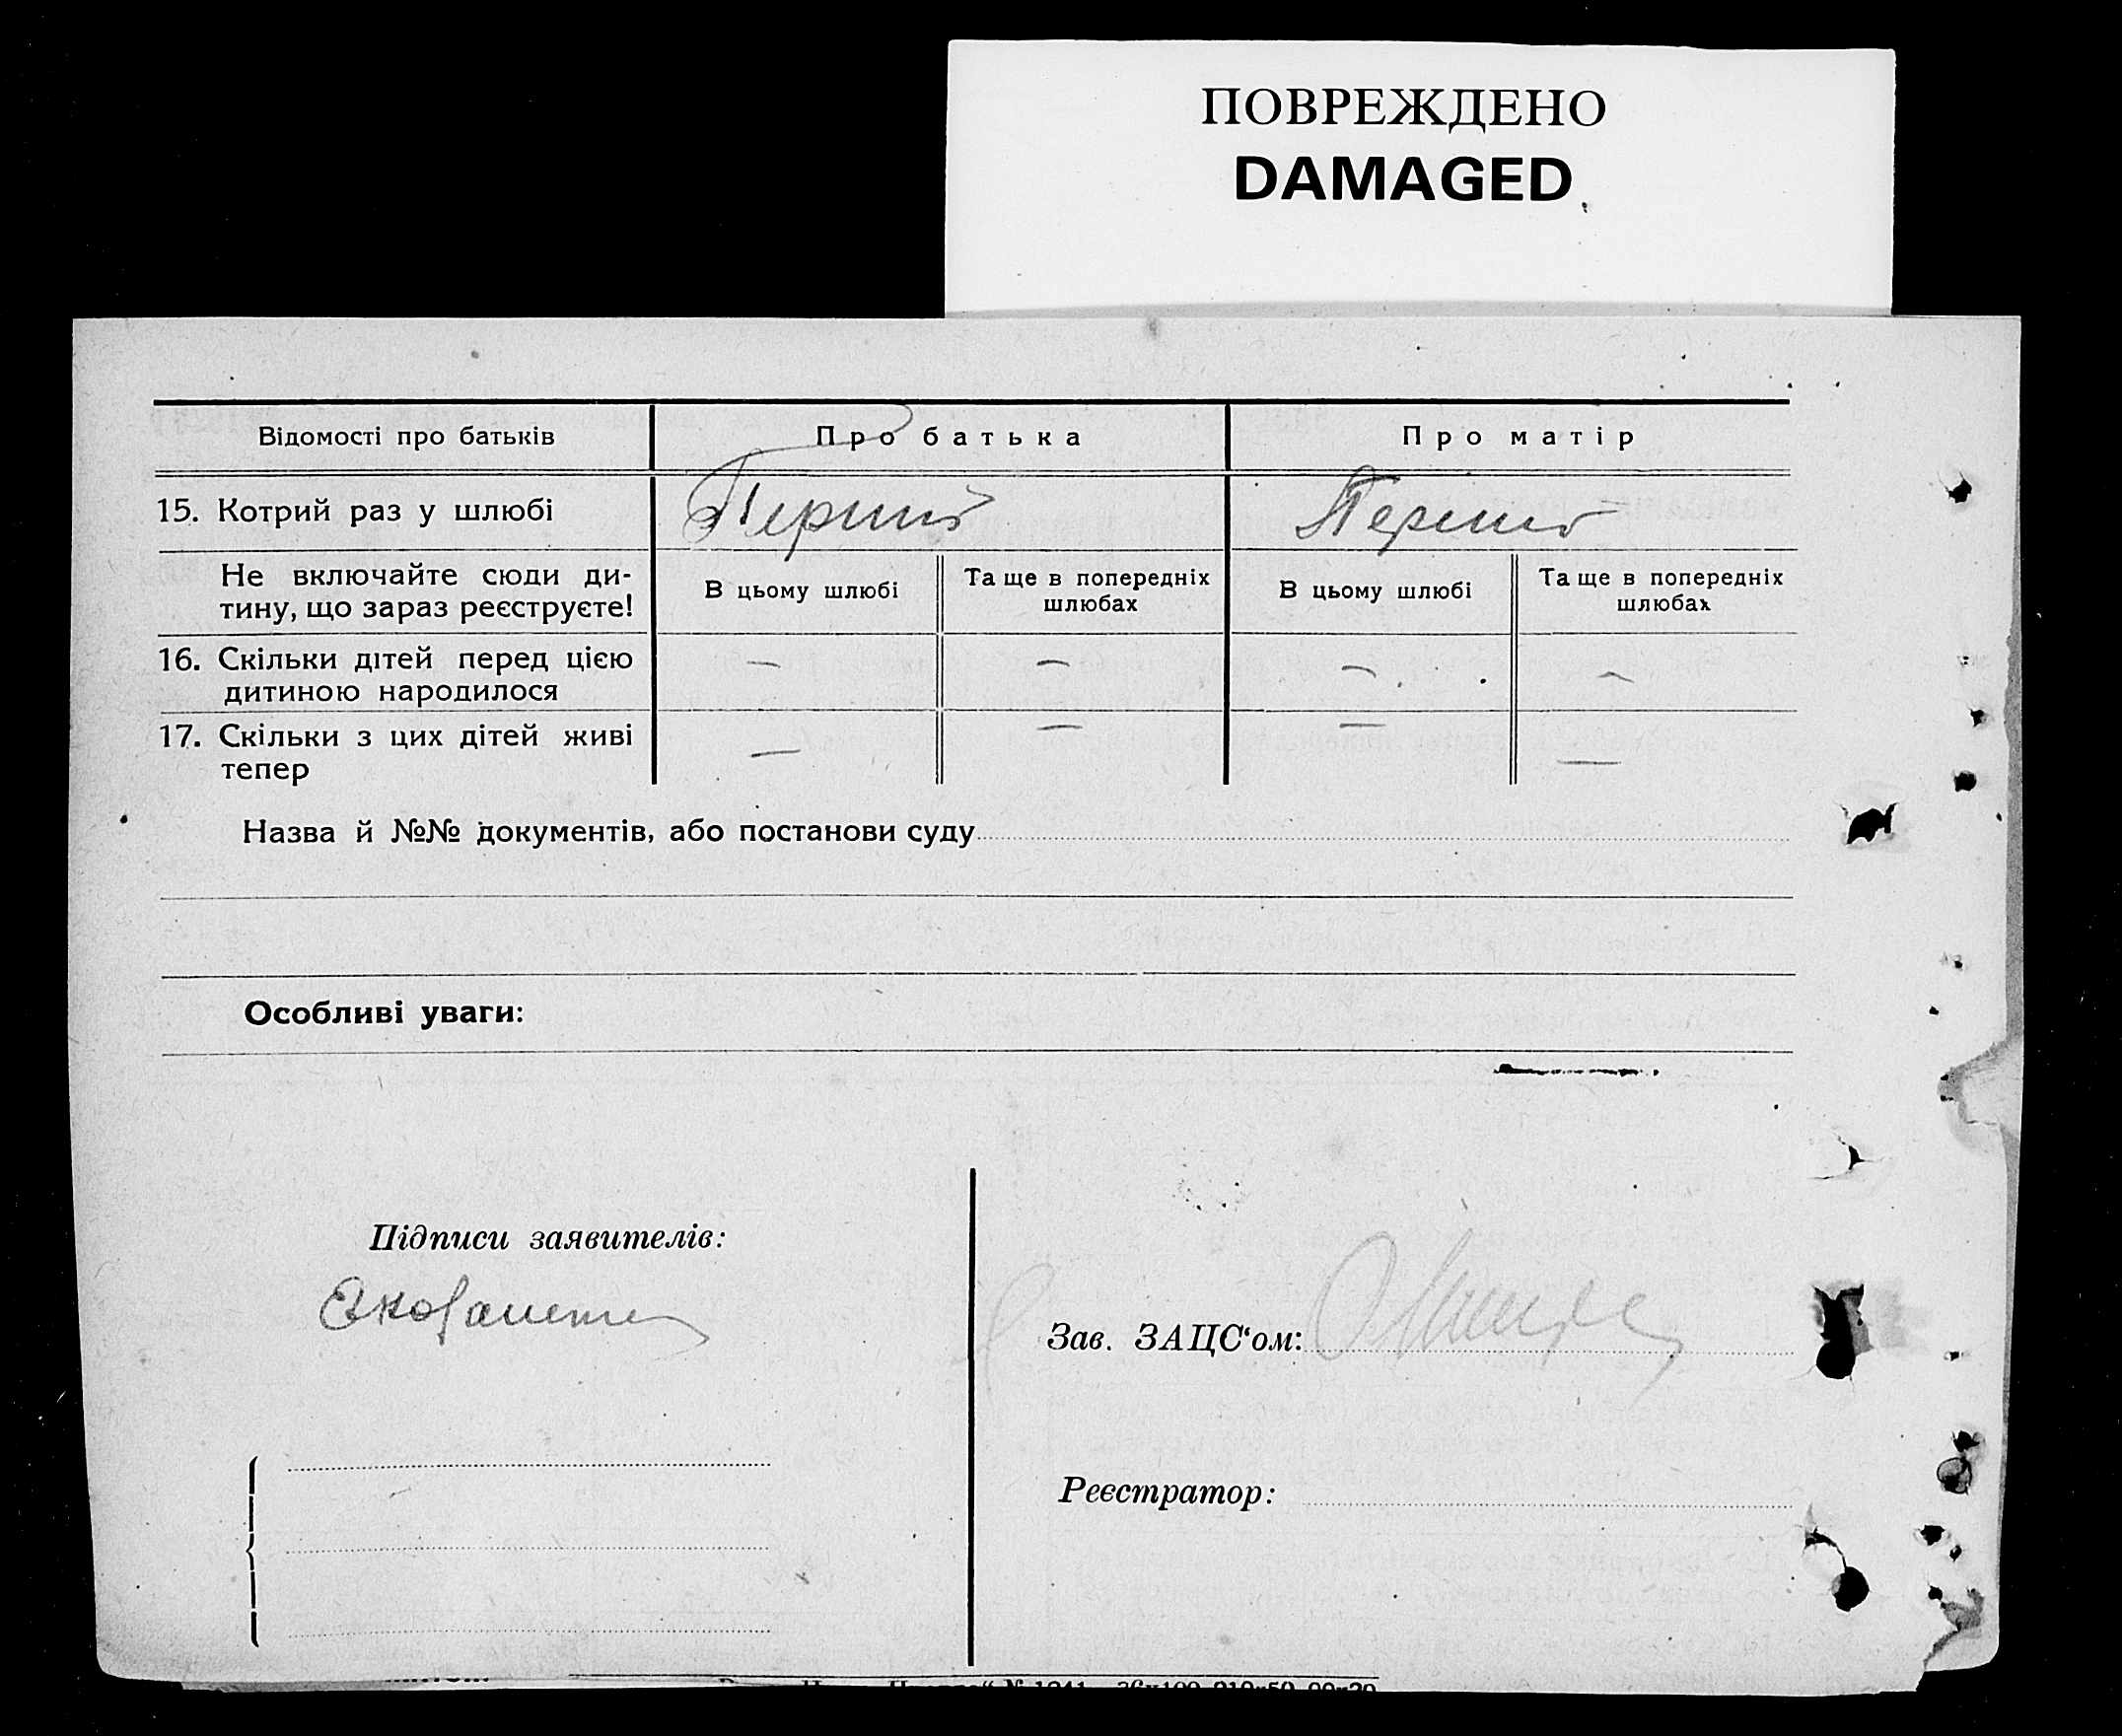 ПОВРЕЖДЕНО
DAMAGED
Відомості про батьків
Про батька
Про матір
15. Котрий раз у шлюбі
Перший
Перший
Не включайте сюди ди-
тину, що зараз реєструєте!
В цьому шлюбі
Та ще в попередніх
шлюбах
В цьому шлюбі
Та ще в попередніх
шлюбах
16. Скільки дітей перед цією
дитиною народилося
— — — —
17. Скільки з цих дітей живі
тепер
— — — —
Назва й №№ документів, або постанови суду
Особливі уваги:
Підписи заявителів:
Зав. ЗАЦС‘ом:
Реєстратор: